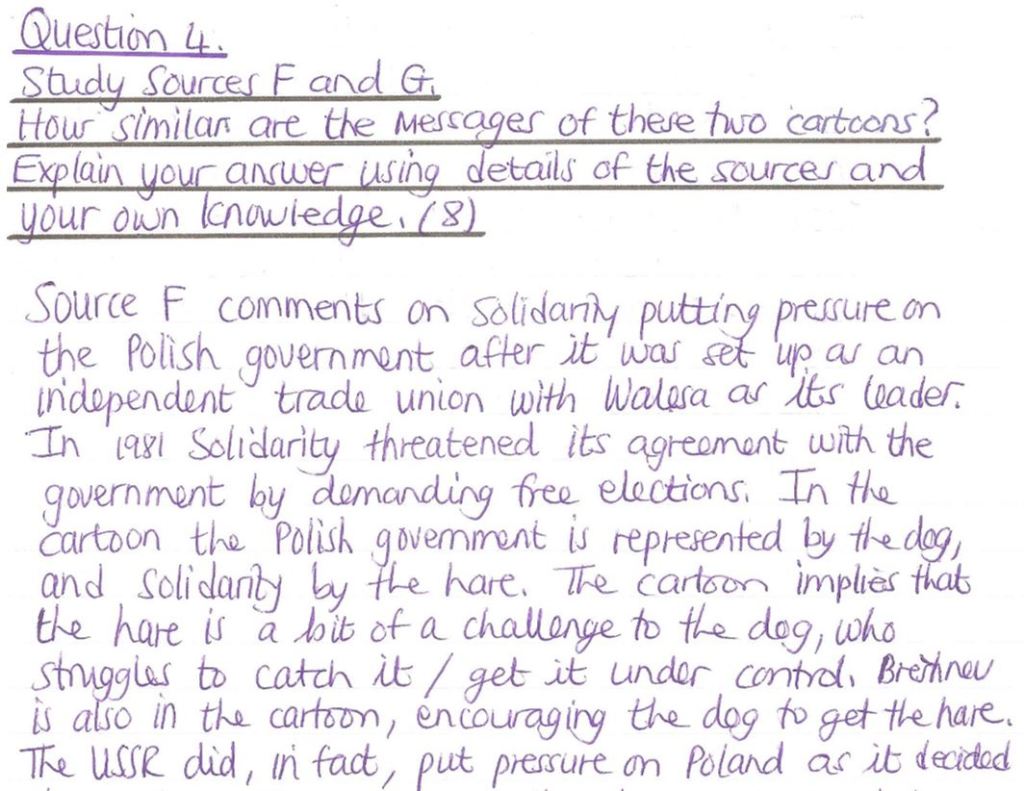 Question 4.
Study Sources F and G.
How similar are the messages of these two cartoons?
Explain your answer using details of the sources and
your own knowledge. (8)
Source F comments on Solidarity putting pressure on
the Polish government after it was set up as an
independent trade union with Walesa as its leader.
In 1981 Solidarity threatened its agreement with the
government by demanding free elections. In the
cartoon the Polish government is represented by the dog,
and Solidarity by the hare. The cartoon implies that
the hare is a bit of a challenge to the dog, who
struggles to catch it / get it under control. Brezhnev
is also in the cartoon, encouraging the dog to get the hare.
The USSR did, in fact, put pressure on Poland as it decided